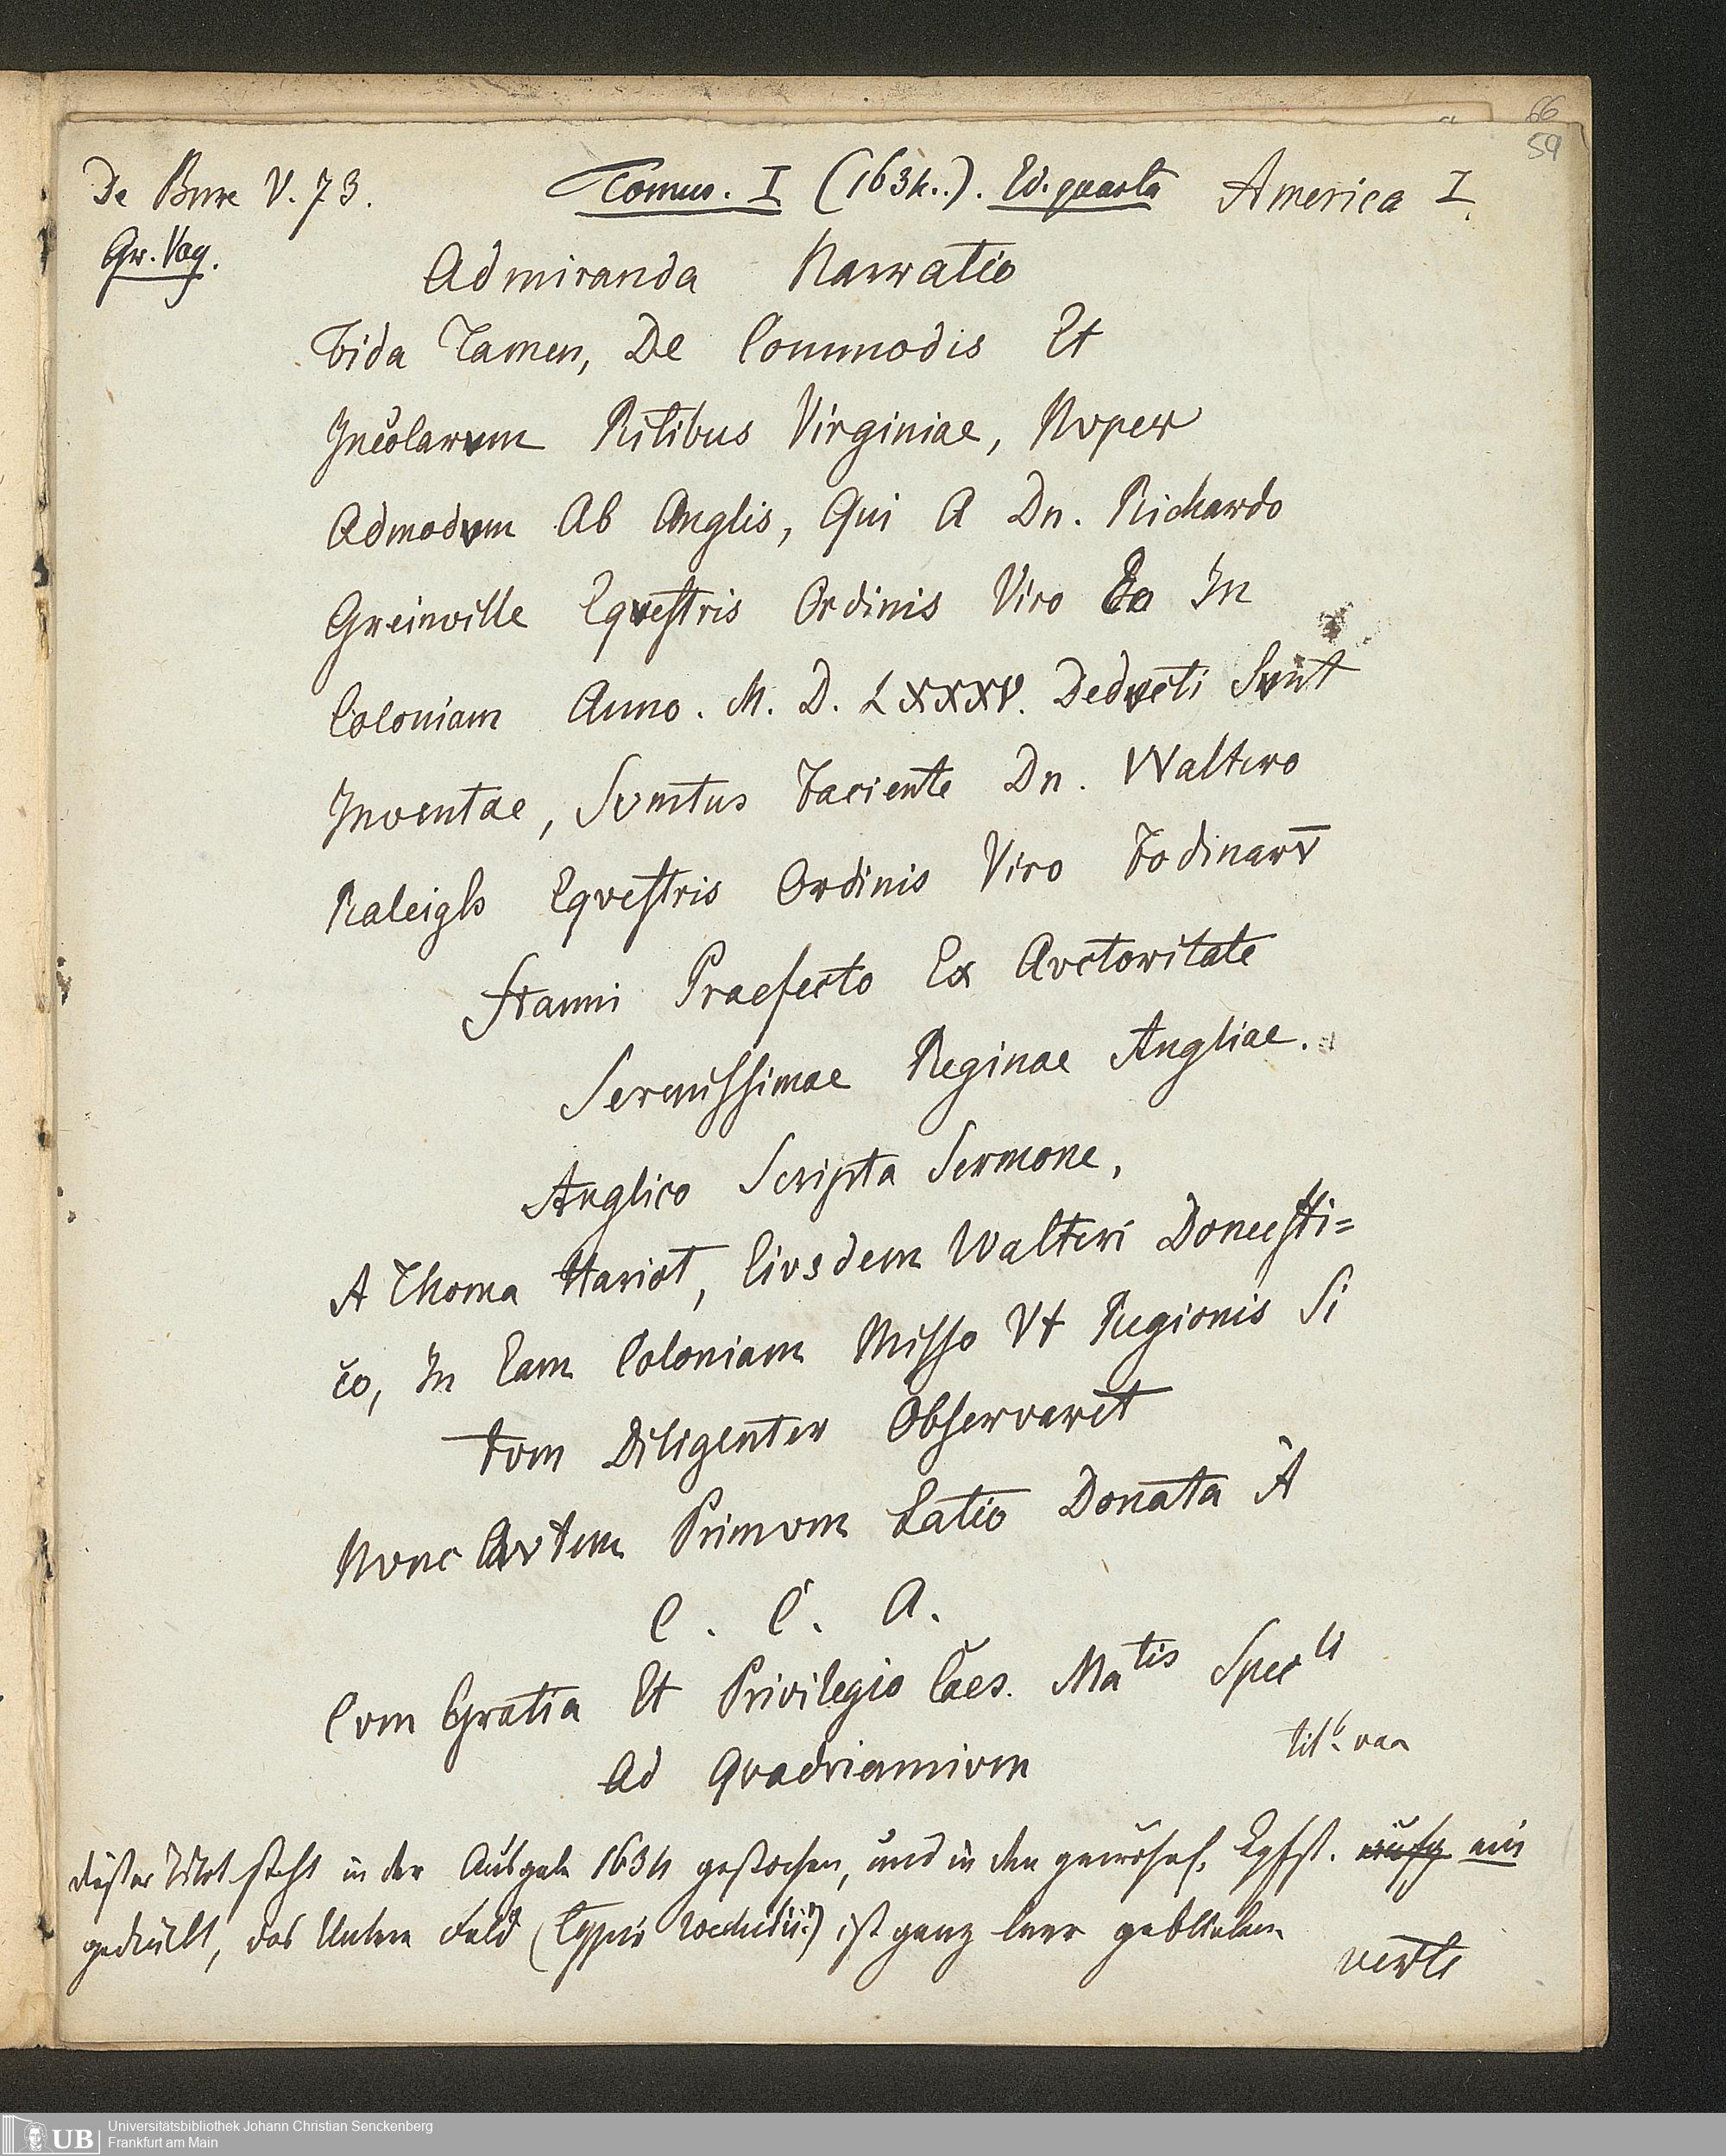 66
59
De Bure V. 73.
Tomus. I (1634..). Ed. quarta
America I.
Gr. Voy.
Admiranda Narratio
Fida Tamen, De Commodis Et
Incolarvm Ritibus Virginiae, Nvper
Admodvm Ab Anglis, Qui A Dn. Richardo
Greinville Eqvestris Ordinis Viro Eo In
Coloniam Anno. M. D. LXXXV. Dedvcti Svnt
Inventae, Svmtus Faciente Dn. Waltero
Raleigh Eqvestris Ordinis Viro Fodinarv̄
Stanni Praefecto Ex Avctoritate
Serenissimae Reginae Angliae.
Anglico Scripta Sermone,
A Thoma Hariot, Eivsdem Walteri Domesti=
co, In Eam Coloniam Misso Vt Regionis Si
tvm Diligenter Observaret
Nvnc Avtem Primvm Latio Donata À
C. C. A.
Cvm Gratia Et Privilegio Caes. Matis Specli
Ad Qvadriennivm
dieser Titel steht in der Ausgabe 1634 gestochen, und in den Kpfst. ein
gedruckt, das Untere Feld (Typis Wechelii) ist ganz leer geblieben
verte
Universitätsbibliothek Johann Christian Senckenberg
Frankfurt am Main
UB